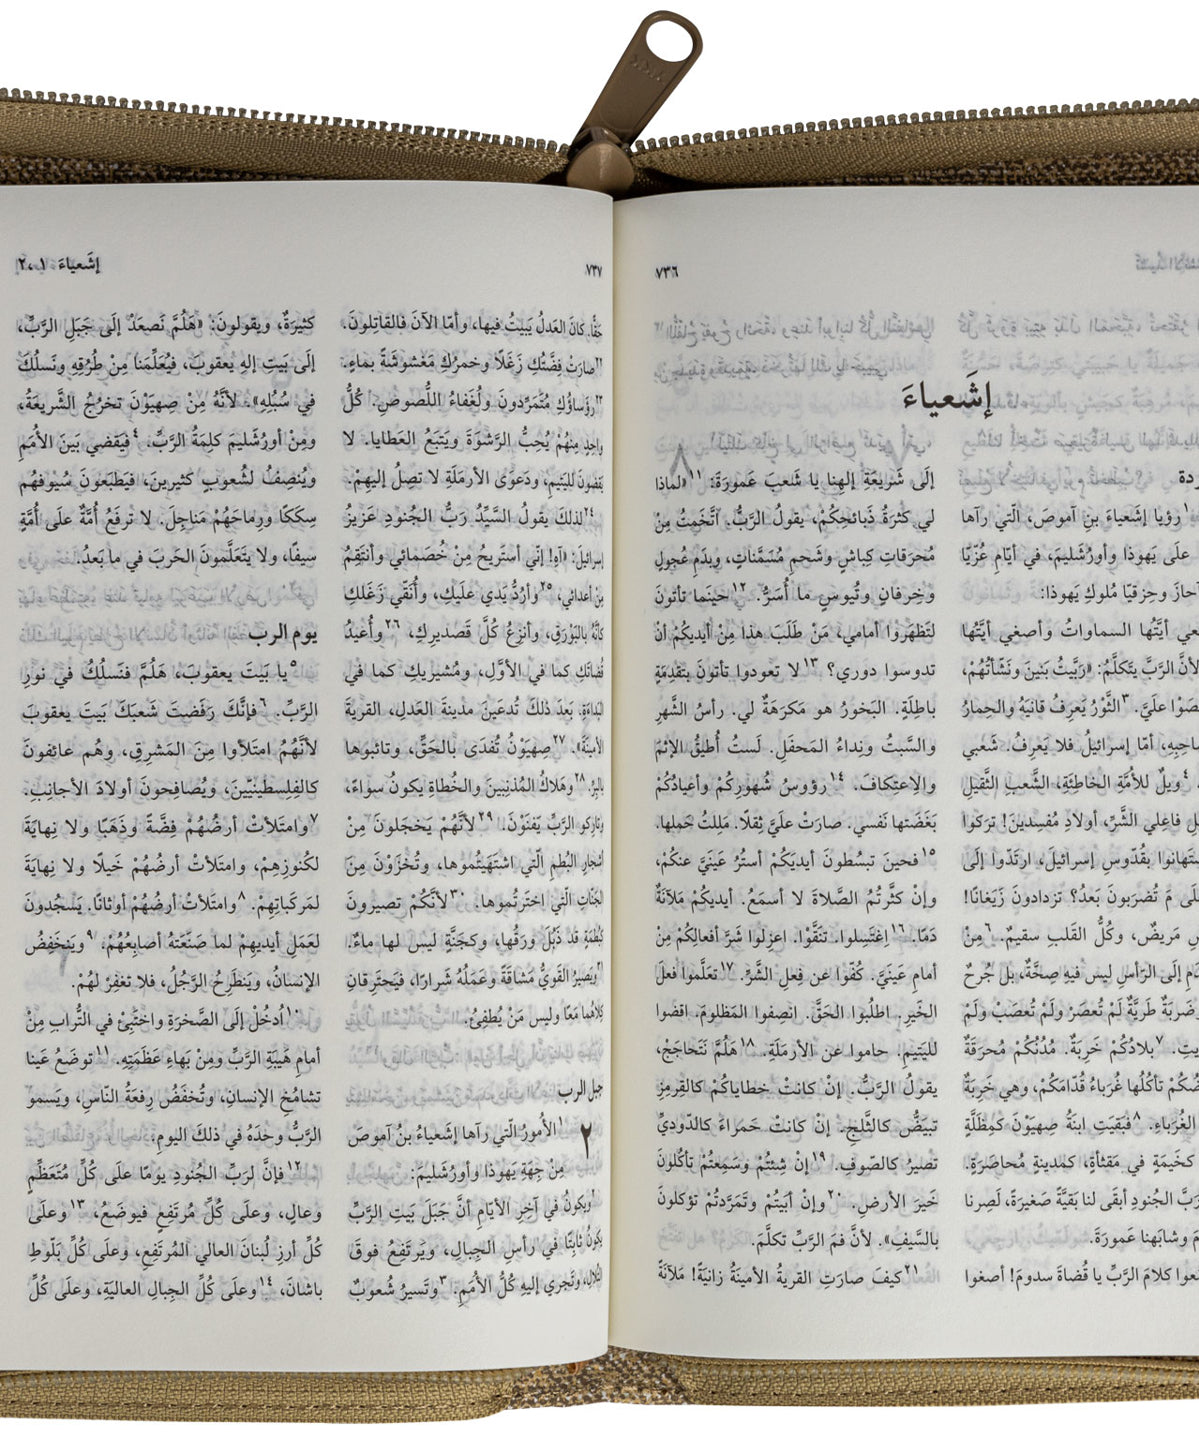 ٧٣٦
إشَعياءَ
ردة
١رؤيا إشَعياءَ بنِ آموصَ، الّتي رآها
علَى يَهوذا وأورُشَليمَ، في أيّامِ عُزّيّا
آحازَ وحِزقيّا مُلوكِ يَهوذا:
عي أيَّتُها السماواتُ وأصغي أيَّتُها
لأنَّ الرَّبَّ يتَكلَّمُ: «رَبَّيتُ بَنينَ ونَشّأتُهُمْ،
صَوْا علَيَّ. ٣الثَّوْرُ يَعرِفُ قانيَهُ والحِمارُ
احِبِهِ، أمّا إسرائيلُ فلا يَعرِفُ. شَعبي
. ٤ويلٌ للأُمَّةِ الخاطِئَةِ، الشَّعبِ الثَّقيلِ
لِ فاعِلي الشَّرِّ، أولادِ مُفسِدينَ! ترَكوا
ستَهانوا بقُدّوسِ إسرائيلَ، ارتَدّوا إلَى
لَى مَ تُضرَبونَ بَعدُ؟ تزدادونَ زَيَغانًا!
سِ مَريضٌ، وكُلُّ القَلبِ سقيمٌ. ٦مِنْ
دَمِ إلَى الرّأسِ ليس فيهِ صِحَّةٌ، بل جُرحٌ
ضَربَةٌ طَريَّةٌ لَمْ تُعصَرْ ولَمْ تُعصَبْ ولَمْ
يتِ. ٧بلادُكُمْ خَرِبَةٌ. مُدُنُكُمْ مُحرَقَةٌ
ضُكُمْ تأكُلُها غُرَباءُ قُدّامَكُمْ، وهي خَرِبَةٌ
الغُرَباءِ. ٨فبَقيَتِ ابنَةُ صِهيَوْنَ كمِظَلَّةٍ
كخَيمَةٍ في مَقثأةٍ، كمدينةٍ مُحاصَرَةٍ.
رَبَّ الجُنودِ أبقَى لنا بَقيَّةً صَغيرَةً، لَصِرنا
مَ وشابَهنا عَمورَةَ.
معوا كلامَ الرَّبِّ يا قُضاةَ سدومَ! أصغوا
إلَى شَريعَةِ إلهِنا يا شَعبَ عَمورَةَ: ١١«لماذا
لي كثرَةُ ذَبائحِكُمْ، يقولُ الرَّبُّ. اتَّخَمتُ مِنْ
مُحرَقاتِ كِباشٍ وشَحمِ مُسَمَّناتٍ، وبدَمِ عُجولٍ
وخِرفانٍ وتُيوسٍ ما أُسَرُّ. ١٢حينَما تأتونَ
لتَظهَروا أمامي، مَنْ طَلَبَ هذا مِنْ أيديكُمْ أنْ
تدوسوا دوري؟ ١٣لا تعودوا تأتونَ بتَقدِمَةٍ
باطِلَةٍ. البَخورُ هو مَكرَهَةٌ لي. رأسُ الشَّهرِ
والسَّبتُ ونِداءُ المَحفَلِ. لَستُ أُطيقُ الإثمَ
والِاعتِكافَ. ١٤رؤوسُ شُهورِكُمْ وأعيادُكُمْ
بَغَضَتها نَفسي. صارَتْ علَيَّ ثِقلًا. مَلِلتُ حَملها.
١٥فحينَ تبسُطونَ أيديَكُمْ أستُرُ عَينَيَّ عنكُمْ،
وإنْ كثَّرتُمُ الصَّلاةَ لا أسمَعُ. أيديكُمْ مَلآنَةٌ
دَمًا. ١٦اِغتَسِلوا. تنَقَّوْا. اعزِلوا شَرَّ أفعالِكُمْ مِنْ
أمامِ عَينَيَّ. كُفّوا عن فِعلِ الشَّرِّ. ١٧تعَلَّموا فعلَ
الخَيرِ. اطلُبوا الحَقَّ. انصِفوا المَظلومَ. اقضوا
لليَتيمِ. حاموا عن الأرمَلَةِ. ١٨هَلُمَّ نَتَحاجَجْ،
يقولُ الرَّبُّ. إنْ كانتْ خطاياكُمْ كالقِرمِزِ
تبيَضُّ كالثَّلجِ. إنْ كانتْ حَمراءَ كالدّوديِّ
تصيرُ كالصّوفِ. ١٩إنْ شِئتُمْ وسَمِعتُمْ تأكُلونَ
خَيرَ الأرضِ. ٢٠وإنْ أبَيتُمْ وتَمَرَّدتُمْ تؤكَلونَ
بالسَّيفِ». لأنَّ فمَ الرَّبِّ تكلَّمَ.
٢١كيفَ صارَتِ القريةُ الأمينَةُ زانيَةً! مَلآنَةً
٧٣٧
إشَعياءَ ١، ٢
حَقًّا. كانَ العَدلُ يَبيتُ فيها، وأمّا الآنَ فالقاتِلونَ.
٢٢صارَتْ فِضَّتُكِ زَغَلًا وخمرُكِ مَغشوشَةً بماءٍ.
٢٣رؤَساؤُكِ مُتَمَرِّدونَ ولُغَفاءُ اللُّصوصِ. كُلُّ
واحِدٍ مِنهُمْ يُحِبُّ الرَّشوَةَ ويَتبَعُ العَطايا. لا
يَقضونَ لليَتيمِ، ودَعوَى الأرمَلَةِ لا تصِلُ إليهِمْ.
٢٤لذلكَ يقولُ السَّيِّدُ رَبُّ الجُنودِ عَزيزُ
إسرائيلَ: «آهِ! إنّي أستَريحُ مِنْ خُصَمائي وأنتَقِمُ
مِنْ أعدائي، ٢٥وأرُدُّ يَدي علَيكِ، وأُنَقّي زَغَلَكِ
كأنَّهُ بالبَوْرَقِ، وأنزِعُ كُلَّ قَصديرِكِ، ٢٦وأُعيدُ
قُضاتَكِ كما في الأوَّلِ، ومُشيريكِ كما في
البَداءَةِ. بَعدَ ذلكَ تُدعَينَ مدينةَ العَدلِ، القريةَ
الأمينَةَ». ٢٧صِهيَوْنُ تُفدَى بالحَقِّ، وتائبوها
بالبِرِّ. ٢٨وهَلاكُ المُذنِبينَ والخُطاةِ يكونُ سواءً،
وتارِكو الرَّبِّ يَفنَوْنَ. ٢٩لأنَّهُمْ يَخجَلونَ مِنْ
أشجارِ البُطمِ الّتي اشتَهَيتُموها، وتُخزَوْنَ مِنَ
الجَنّاتِ الّتي اختَرتُموها. ٣٠لأنَّكُمْ تصيرونَ
كبُطمَةٍ قد ذَبُلَ ورَقُها، وكجَنَّةٍ ليس لها ماءٌ.
ويَصيرُ القَويُّ مَشاقَةً وعَمَلُهُ شَرارًا، فيَحتَرِقانِ
كِلاهُما مَعًا وليس مَنْ يُطفِئُ.
جبل الرب
٢ ١الأُمورُ الّتي رآها إشَعياءُ بنُ آموصَ
مِنْ جِهَةِ يَهوذا وأورُشَليمَ:
ويكونُ في آخِرِ الأيّامِ أنَّ جَبَلَ بَيتِ الرَّبِّ
يكونُ ثابِتًا في رأسِ الجِبالِ، ويَرتَفِعُ فوقَ
التِّلالِ، وتَجري إليهِ كُلُّ الأُمَمِ. ٣وتَسيرُ شُعوبٌ
كثيرَةٌ، ويقولونَ: «هَلُمَّ نَصعَدْ إلَى جَبَلِ الرَّبِّ،
إلَى بَيتِ إلهِ يعقوبَ، فيُعَلِّمَنا مِنْ طُرُقِهِ ونَسلُكَ
في سُبُلِهِ». لأنَّهُ مِنْ صِهيَوْنَ تخرُجُ الشَّريعَةُ،
ومِنْ أورُشَليمَ كلِمَةُ الرَّبِّ. ٤فيَقضي بَينَ الأُمَمِ
ويُنصِفُ لشُعوبٍ كثيرينَ، فيَطبَعونَ سُيوفَهُم
سِكَكًا ورِماحَهُمْ مَناجِلَ. لا ترفَعُ أُمَّةٌ علَى أُمَّةٍ
سيفًا، ولا يتَعَلَّمونَ الحَربَ في ما بَعدُ.
يوم الرب
٥يا بَيتَ يعقوبَ، هَلُمَّ فنَسلُكُ في نورِ
الرَّبِّ. ٦فإنَّكَ رَفَضتَ شَعبَكَ بَيتَ يعقوبَ
لأنَّهُمُ امتَلأوا مِنَ المَشرِقِ، وهُم عائفونَ
كالفِلِسطينيّينَ، ويُصافِحونَ أولادَ الأجانِبِ.
٧وامتَلأتْ أرضُهُمْ فِضَّةً وذَهَبًا ولا نِهايَةَ
لكُنوزِهِمْ، وامتَلأتْ أرضُهُمْ خَيلًا ولا نِهايَةَ
لمَركَباتِهِمْ. ٨وامتَلأتْ أرضُهُمْ أوثانًا. يَسجُدونَ
لعَمَلِ أيديهِمْ لما صَنَعَتهُ أصابِعُهُمْ، ٩ويَنخَفِضُ
الإنسانُ، ويَنطَرِحُ الرَّجُلُ، فلا تغفِرْ لهُمْ.
١٠اُدخُلْ إلَى الصَّخرَةِ واختَبِئْ في التُّرابِ مِنْ
أمامِ هَيبَةِ الرَّبِّ ومِنْ بَهاءِ عَظَمَتِهِ. ١١توضَعُ عَينا
تشامُخِ الإنسانِ، وتُخفَضُ رِفعَةُ النّاسِ، ويَسمو
الرَّبُّ وحدَهُ في ذلكَ اليومِ.
١٢فإنَّ لرَبِّ الجُنودِ يومًا علَى كُلِّ مُتَعَظِّمٍ
وعالٍ، وعلَى كُلِّ مُرتَفِعٍ فيوضَعُ، ١٣وعلَى
كُلِّ أرزِ لُبنانَ العالي المُرتَفِعِ، وعلَى كُلِّ بَلّوطِ
باشانَ، ١٤وعلَى كُلِّ الجِبالِ العاليَةِ، وعلَى كُلِّ